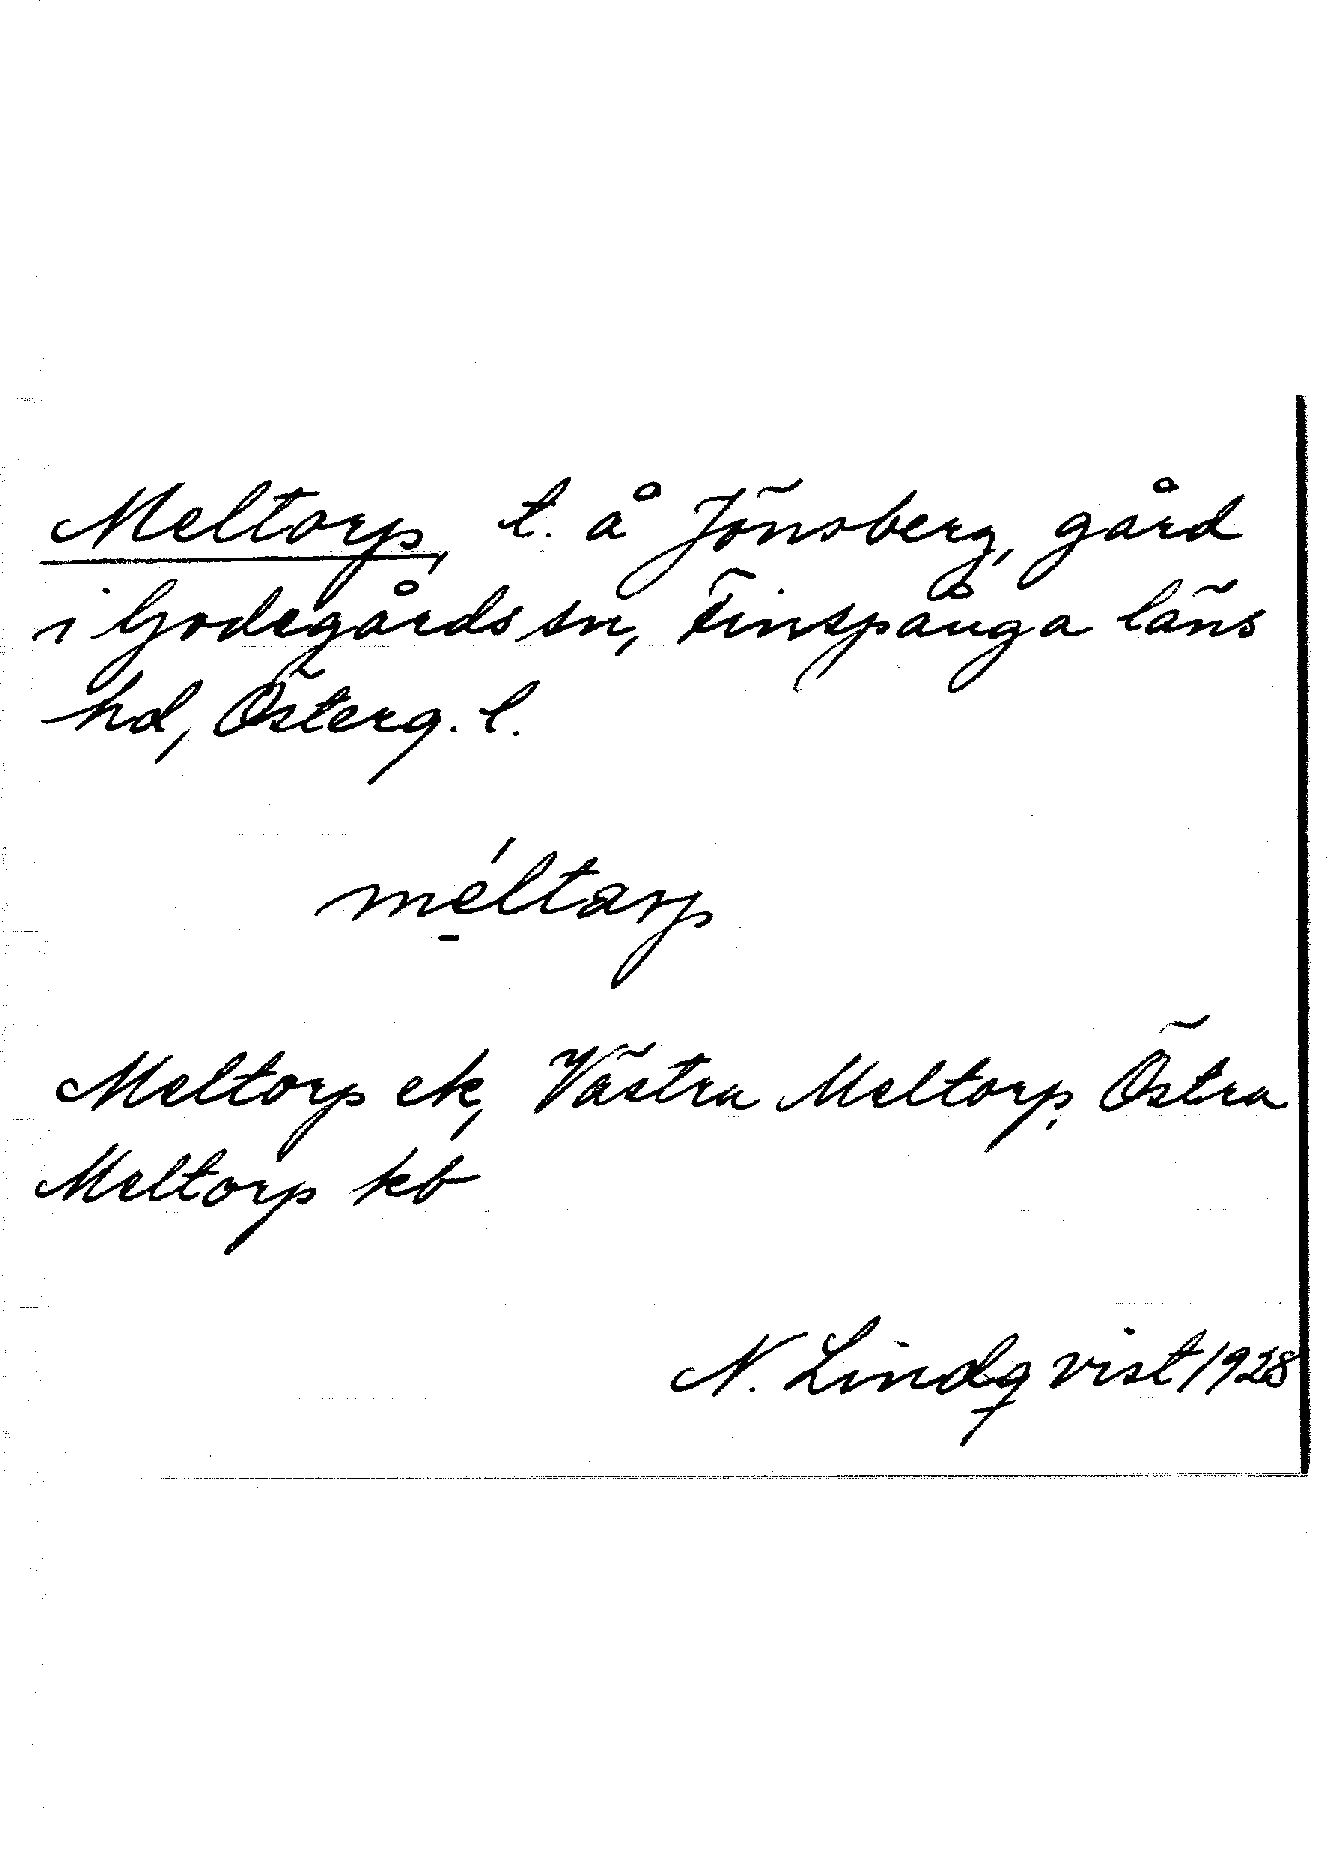 Meltorp, t. å Jönsberg, gård
i Godegårds sn, Finspånga läns
hd, Österg. l.
méltarp
Meltorp ek, Västra Meltorp, Östra
Meltorp kb
N. Lindqvist 1928